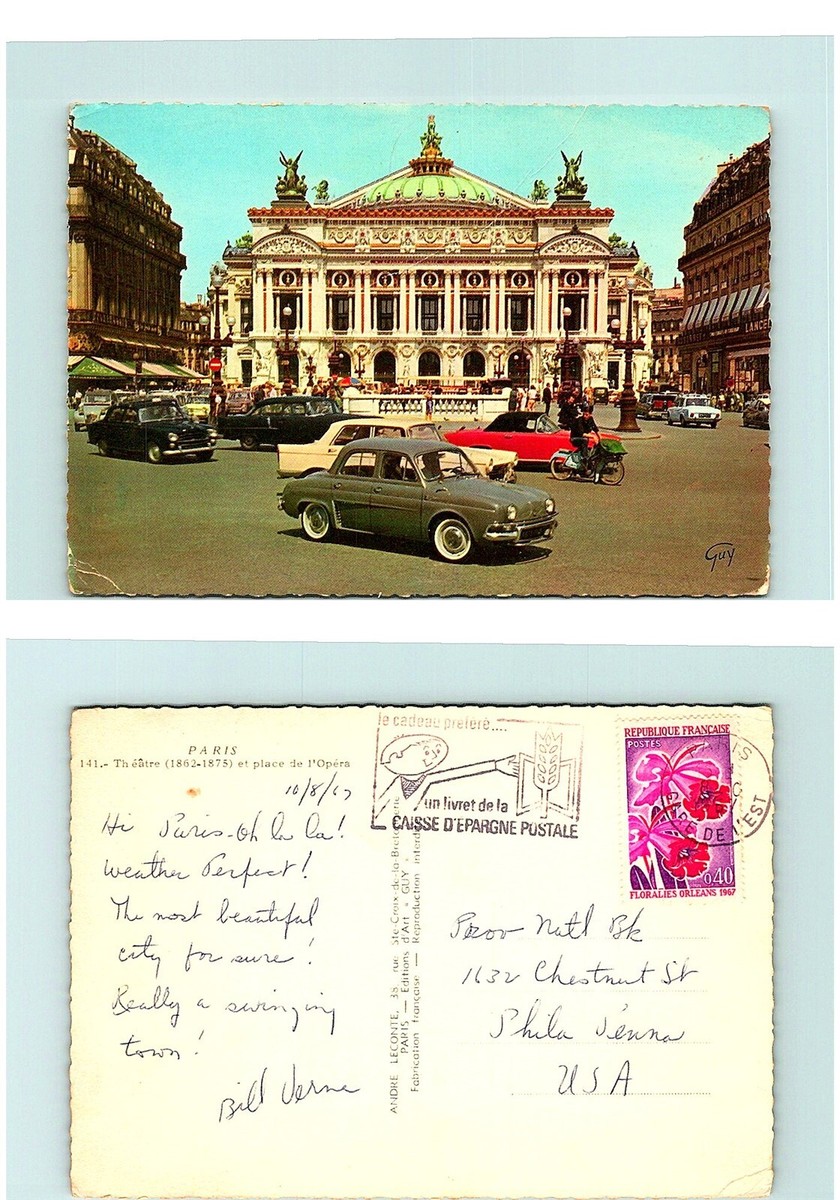 LANCEL
Guy
PARIS
141.- Théâtre (1862-1875) et place de l'Opéra
10/8/67
Hi Paris-Oh la la!
Weather Perfect!
The most beautiful
city for sure!
Really a swinging
town!
Bill Verna
le cadeau préféré....
un livret de la
CAISSE D'EPARGNE POSTALE
ANDRE LECONTE, 38, rue Ste-Croix-de-la-Bretonnerie
PARIS — Editions d'Art « GUY »
Fabrication française — Reproduction interdite
REPUBLIQUE FRANÇAISE
POSTES
0,40
FLORALIES ORLEANS 1967
PARIS
GARE DE L'EST
Prov Natl Bk
1632 Chestnut St
Phila Penna
USA